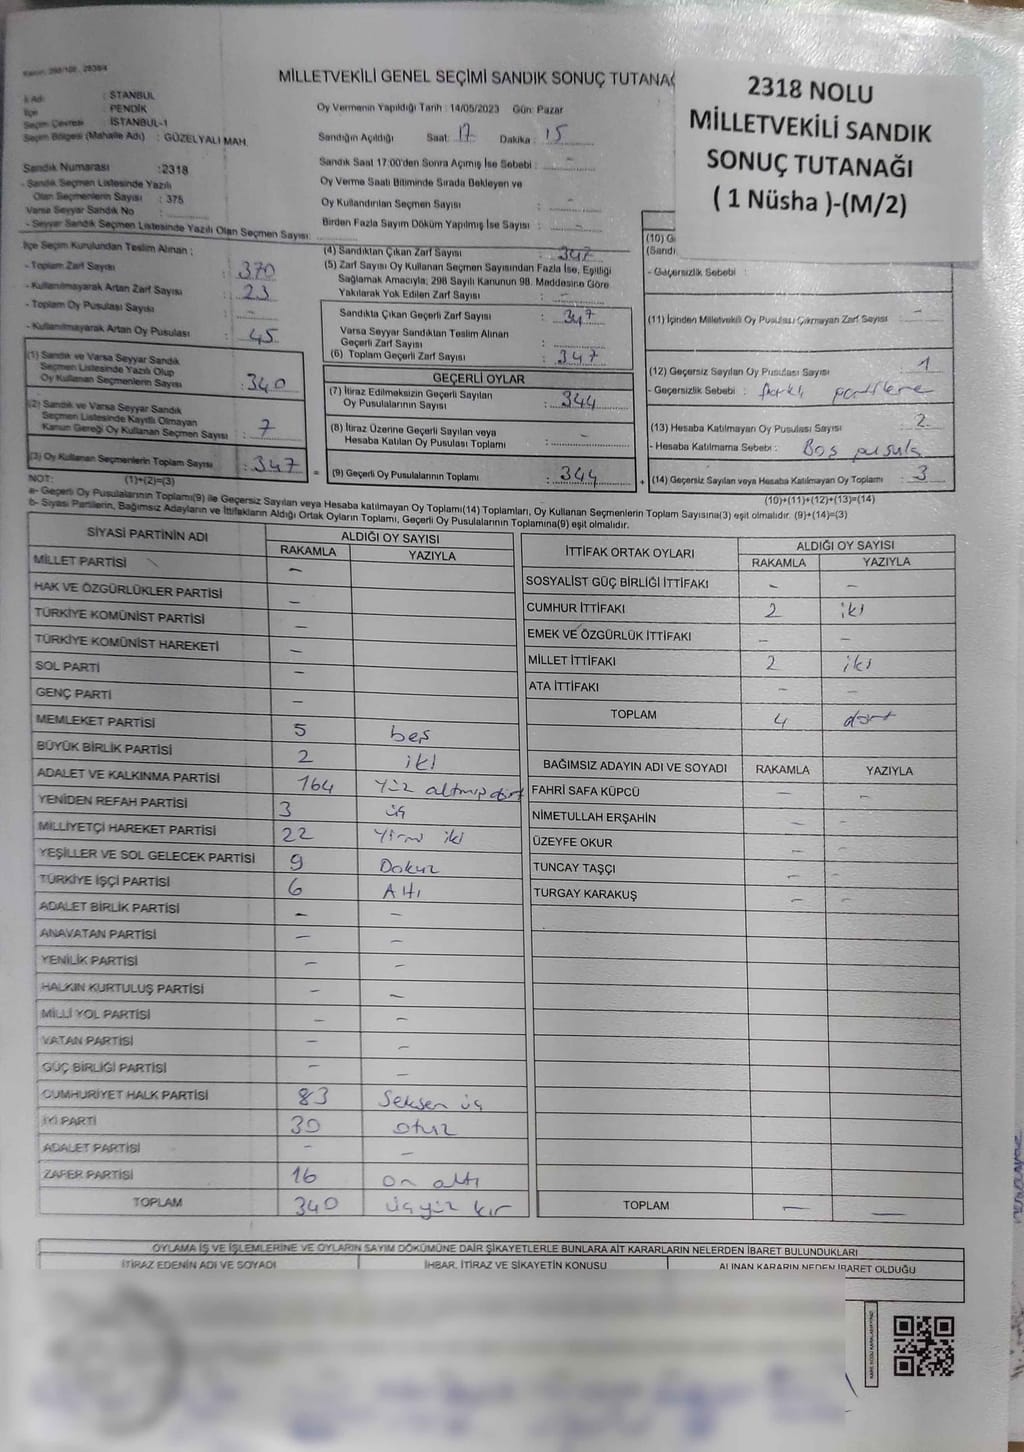 Kanun: 298/105 , 2839/4
MİLLETVEKİLİ GENEL SEÇİMİ SANDIK SONUÇ TUTANAĞ
2318 NOLU
MİLLETVEKİLİ SANDIK
SONUÇ TUTANAĞI
( 1 Nüsha )-(M/2)
İl Adı : STANBUL
İlçe : PENDİK
Seçim Çevresi : İSTANBUL-1
Seçim Bölgesi (Mahalle Adı) : GÜZELYALI MAH.
Oy Vermenin Yapıldığı Tarih : 14/05/2023 Gün: Pazar
Sandığın Açıldığı Saat: 17 Dakika : 15
Sandık Saat 17:00'den Sonra Açımış İse Sebebi : -
Oy Verme Saati Bitiminde Sırada Bekleyen ve
Oy Kullandırılan Seçmen Sayısı : -
Birden Fazla Sayım Döküm Yapılmış İse Sayısı : -
Sandık Numarası :2318
- Sandık Seçmen Listesinde Yazılı
Olan Seçmenlerin Sayısı : 375
Varsa Seyyar Sandık No :
- Seyyar Sandık Seçmen Listesinde Yazılı Olan Seçmen Sayısı:
İlçe Seçim Kurulundan Teslim Alınan :
- Toplam Zarf Sayısı : 370
- Kullanılmayarak Artan Zarf Sayısı : 23
- Toplam Oy Pusulası Sayısı : -
- Kullanılmayarak Artan Oy Pusulası : 45
(1) Sandık ve Varsa Seyyar Sandık
Seçmen Listesinde Yazılı Olup
Oy Kullanan Seçmenlerin Sayısı : 340
(2) Sandık ve Varsa Seyyar Sandık
Seçmen Listesinde Kayıtlı Olmayan
Kanun Gereği Oy Kullanan Seçmen Sayısı : 7
(3) Oy Kullanan Seçmenlerin Toplam Sayısı : 347
NOT: (1)+(2)=(3)
(4) Sandıktan Çıkan Zarf Sayısı : 347
(5) Zarf Sayısı Oy Kullanan Seçmen Sayısından Fazla İse, Eşitliği
Sağlamak Amacıyla, 298 Sayılı Kanunun 98. Maddesine Göre
Yakılarak Yok Edilen Zarf Sayısı : -
Sandıkta Çıkan Geçerli Zarf Sayısı : 347
Varsa Seyyar Sandıktan Teslim Alınan
Geçerli Zarf Sayısı :
(6) Toplam Geçerli Zarf Sayısı : 347
GEÇERLİ OYLAR
(7) İtiraz Edilmeksizin Geçerli Sayılan
Oy Pusulalarının Sayısı : 344
(8) İtiraz Üzerine Geçerli Sayılan veya
Hesaba Katılan Oy Pusulası Toplamı : -
= (9) Geçerli Oy Pusulalarının Toplamı : 344
(10) G
(Sandı
- Geçersizlik Sebebi :
(11) İçinden Milletvekili Oy Pusulası Çıkmayan Zarf Sayısı : -
(12) Geçersiz Sayılan Oy Pusulası Sayısı : 1
- Geçersizlik Sebebi : farklı partilere
(13) Hesaba Katılmayan Oy Pusulası Sayısı : 2
- Hesaba Katılmama Sebebi : Boş pusula
+ (14) Geçersiz Sayılan veya Hesaba Katılmayan Oy Toplamı : 3
(10)+(11)+(12)+(13)=(14)
a- Geçerli Oy Pusulalarının Toplamı(9) ile Geçersiz Sayılan veya Hesaba katılmayan Oy Toplamı(14) Toplamları, Oy Kullanan Seçmenlerin Toplam Sayısına(3) eşit olmalıdır. (9)+(14)=(3)
b- Siyasi Partilerin, Bağımsız Adayların ve İttifakların Aldığı Ortak Oyların Toplamı, Geçerli Oy Pusulalarının Toplamına(9) eşit olmalıdır.
SİYASİ PARTİNİN ADI ALDIĞI OY SAYISI
RAKAMLA YAZIYLA
MİLLET PARTİSİ -
HAK VE ÖZGÜRLÜKLER PARTİSİ -
TÜRKİYE KOMÜNİST PARTİSİ -
TÜRKİYE KOMÜNİST HAREKETİ -
SOL PARTİ -
GENÇ PARTİ -
MEMLEKET PARTİSİ 5 beş
BÜYÜK BİRLİK PARTİSİ 2 iki
ADALET VE KALKINMA PARTİSİ 164 Yüz altmış dört
YENİDEN REFAH PARTİSİ 3 üç
MİLLİYETÇİ HAREKET PARTİSİ 22 Yirmi iki
YEŞİLLER VE SOL GELECEK PARTİSİ 9 Dokuz
TÜRKİYE İŞÇİ PARTİSİ 6 Altı
ADALET BİRLİK PARTİSİ - -
ANAVATAN PARTİSİ - -
YENİLİK PARTİSİ - -
HALKIN KURTULUŞ PARTİSİ - -
MİLLİ YOL PARTİSİ - -
VATAN PARTİSİ - -
GÜÇ BİRLİĞİ PARTİSİ - -
CUMHURİYET HALK PARTİSİ 83 Seksen üç
İYİ PARTİ 30 otuz
ADALET PARTİSİ - -
ZAFER PARTİSİ 16 on altı
TOPLAM 340 üçyüz kır
İTTİFAK ORTAK OYLARI ALDIĞI OY SAYISI
RAKAMLA YAZIYLA
SOSYALİST GÜÇ BİRLİĞİ İTTİFAKI - -
CUMHUR İTTİFAKI 2 iki
EMEK VE ÖZGÜRLÜK İTTİFAKI - -
MİLLET İTTİFAKI 2 iki
ATA İTTİFAKI - -
TOPLAM 4 dört
BAĞIMSIZ ADAYIN ADI VE SOYADI RAKAMLA YAZIYLA
FAHRİ SAFA KÜPCÜ - -
NİMETULLAH ERŞAHİN - -
ÜZEYFE OKUR - -
TUNCAY TAŞÇI - -
TURGAY KARAKUŞ - -
TOPLAM - -
OYLAMA İŞ VE İŞLEMLERİNE VE OYLARIN SAYIM DÖKÜMÜNE DAİR ŞİKAYETLERLE BUNLARA AİT KARARLARIN NELERDEN İBARET BULUNDUKLARI
İTİRAZ EDENİN ADI VE SOYADI İHBAR, İTİRAZ VE ŞİKAYETİN KONUSU ALINAN KARARIN NEDEN İBARET OLDUĞU